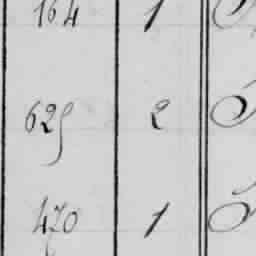 164 1
625 2
470 1